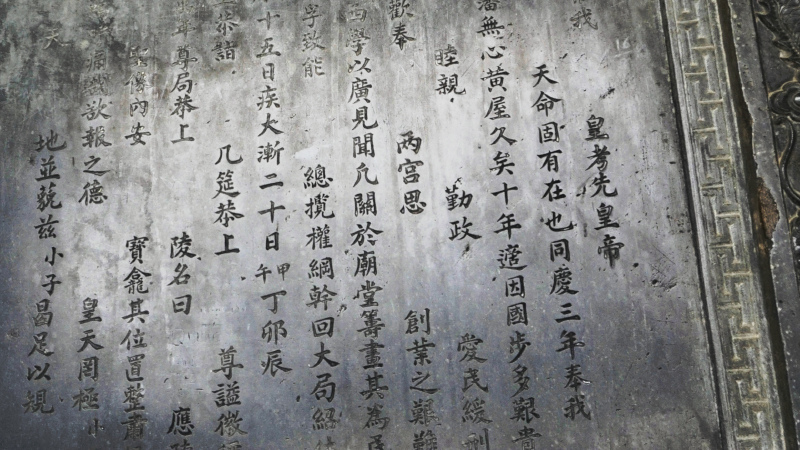 我 皇考先皇帝
天命固有在也同慶三年奉我
潘無心黄屋久矣十年適因國步多艱貴
睦親 勤政 愛民緩刑
歡奉 兩宮思 創業之艱難
西學以廣見聞凢關於廟堂籌畫其為
字致能 總攬權綱幹回大局
十五日疾大漸二十日甲午丁卯辰
恭詣 几筵恭上 尊謚徽
年尊局恭上 陵名曰 應陵
內安 寶龕其位置整肅
痛哉欲報之德 皇天罔極小
天 地並藐兹小子曷足以規